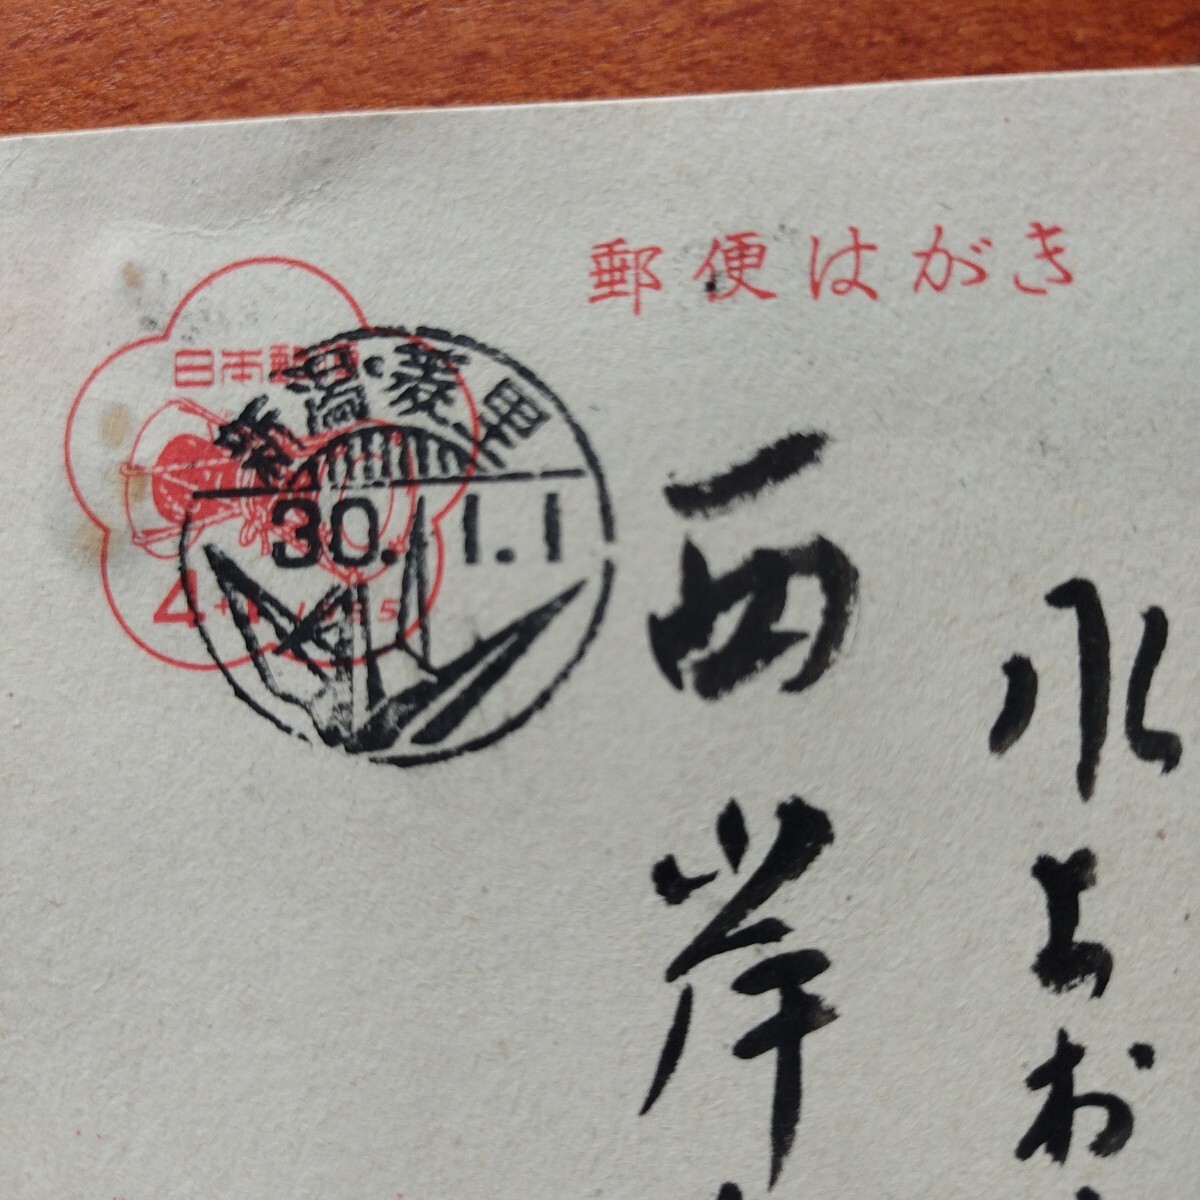 郵便はがき
日本郵便
4+1 1955
新潟・菱里
30.1.1
西岸
水上村